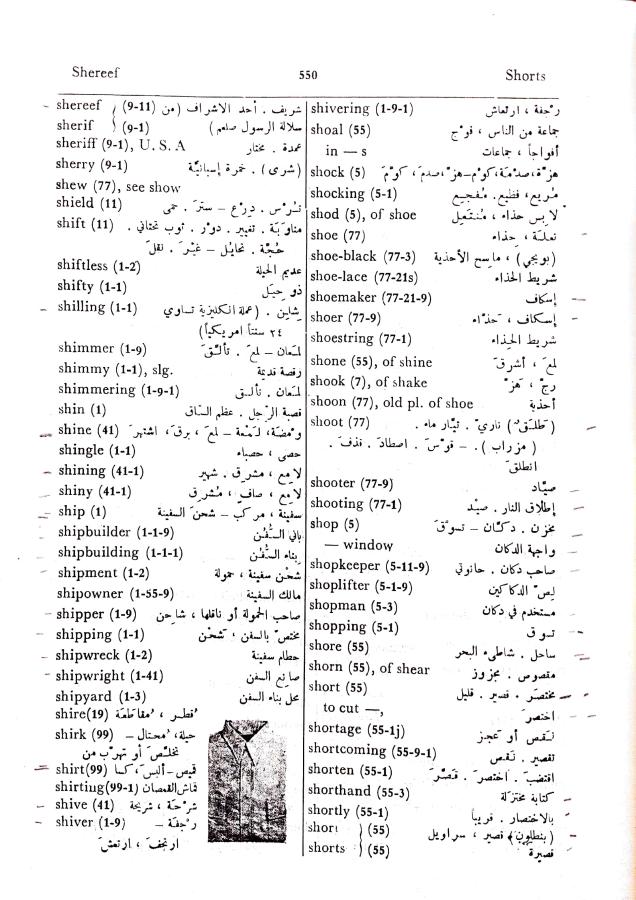 Shereef 550 Shorts
shereef } (9-11) شريف . أحد الاشراف (من
sherif } (9-1) سلالة الرسول صلعم)
sheriff (9-1), U. S. A عمدة . مختار
sherry (9-1) (شري) . خمرة إسبانيّة
shew (77), see show
shield (11) تُرْس . دِرْع – سترَ . حمى
shift (11) مناوَبَة . تغيير . دوْر . ثوب تحتاني .
حُجَّة . تحايُل – غيّرَ . نقلَ
shiftless (1-2) عديم الحيلة
shifty (1-1) ذو حِيَل
shilling (1-1) شِلِن . (عملة انكليزية تساوي
٢٤ سنتاً امريكياً)
shimmer (1-9) لَمَعان – لمعَ . تألّقَ
shimmy (1-1), slg. رقصة قديمة
shimmering (1-9-1) لمَعان . تألّق
shin (1) قصبة الرِّجل . عظم السّاق
shine (41) ومْضَة، لَمْعَة – لمعَ ، برقَ، اشتهرَ
shingle (1-1) حصى ، حصباء
shining (41-1) لامِع ، مشرِق . شهير
shiny (41-1) لامِع ، صافٍ ، مُشرِق
ship (1) سفينة ، مركب – شحنَ السفينة
shipbuilder (1-1-9) باني السُّفُن
shipbuilding (1-1-1) بِناء السُّفُن
shipment (1-2) شحْن سفينة ، حمولة
shipowner (1-55-9) مالك السفينة
shipper (1-9) صاحب الحمولة أو ناقلها ، شاحِن
shipping (1-1) مختصّ بالسفن ، شَحْن
shipwreck (1-2) حطام سفينة
shipwright (1-41) صانِع السفن
shipyard (1-3) محل بناء السفن
shire(19) قُطْر ، مُقاطَعة
shirk (99) حيلة، مُحتال –
تخلّصَ أو تهرّب من
shirt(99) قميص – ألبسَ، كسا
shirting(99-1) قماش القمصان
shive (41) شرْحَة ، شريحة
shiver (1-9) رَجْفَة –
ارتجفَ ، ارتعشَ
shivering (1-9-1) رجْفة ، ارتعاش
shoal (55) جماعة من الناس ، فوْج
in — s أفواجاً ، جماعات
shock (5) هزّة، صدْمَة، كوْم – هزّ، صدَمَ، كوّمَ
shocking (5-1) مُريع، فظيع. مُفجِع
shod (5), of shoe لابِس حذاء ، مُنتعِل
shoe (77) نعلة ، حذاء
shoe-black (77-3) (بويجي) ، ماسح الأحذية
shoe-lace (77-21s) شريط الحذاء
shoemaker (77-21-9) إسكاف
shoer (77-9) إسكاف ، حَذّاء
shoestring (77-1) شريط الحِذاء
shone (55), of shine لمعَ ، أشرقَ
shook (7), of shake رجّ ، هزّ
shoon (77), old pl. of shoe أحذية
shoot (77) (طَلْق) ناريّ . تيّار ماء .
(مزراب) . – قوّسَ . اصطادَ . قذف .
انطلقَ
shooter (77-9) صيّاد
shooting (77-1) إطلاق النار . صيْد
shop (5) مخزن . دكّان – تسوّقَ
— window واجهة الدكان
shopkeeper (5-11-9) صاحب دكان . حانوتي
shoplifter (5-1-9) لِص الدكاكين
shopman (5-3) مستخدم في دكان
shopping (5-1) تسوّق
shore (55) ساحل . شاطىء البحر
shorn (55), of shear مقصوص . مجزوز
short (55) مختصَر . قصير . قليل
to cut —, اختصرَ
shortage (55-1j) نَقص أو عجز
shortcoming (55-9-1) تقصير . نَقص
shorten (55-1) اقتضبَ . اختصرَ . قصّرَ
shorthand (55-3) كتابة مختزلة
shortly (55-1) بالاختصار . قريباً
short } (55) (بنطلون) قصير ، سراويل
shorts } (55) قصيرة